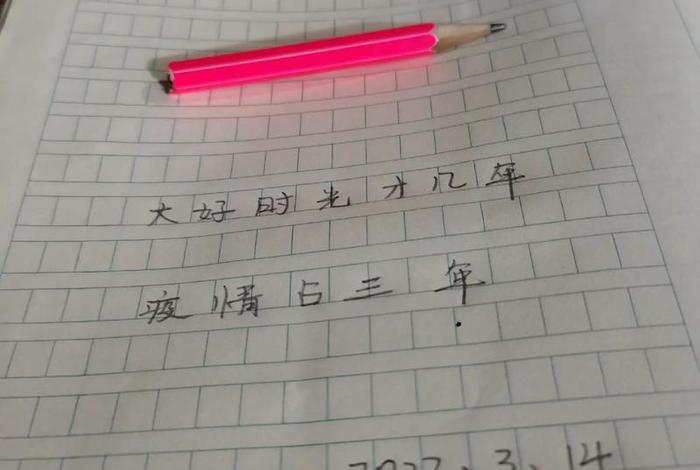 大好时光才几年
疫情占三年.
2022.3.14